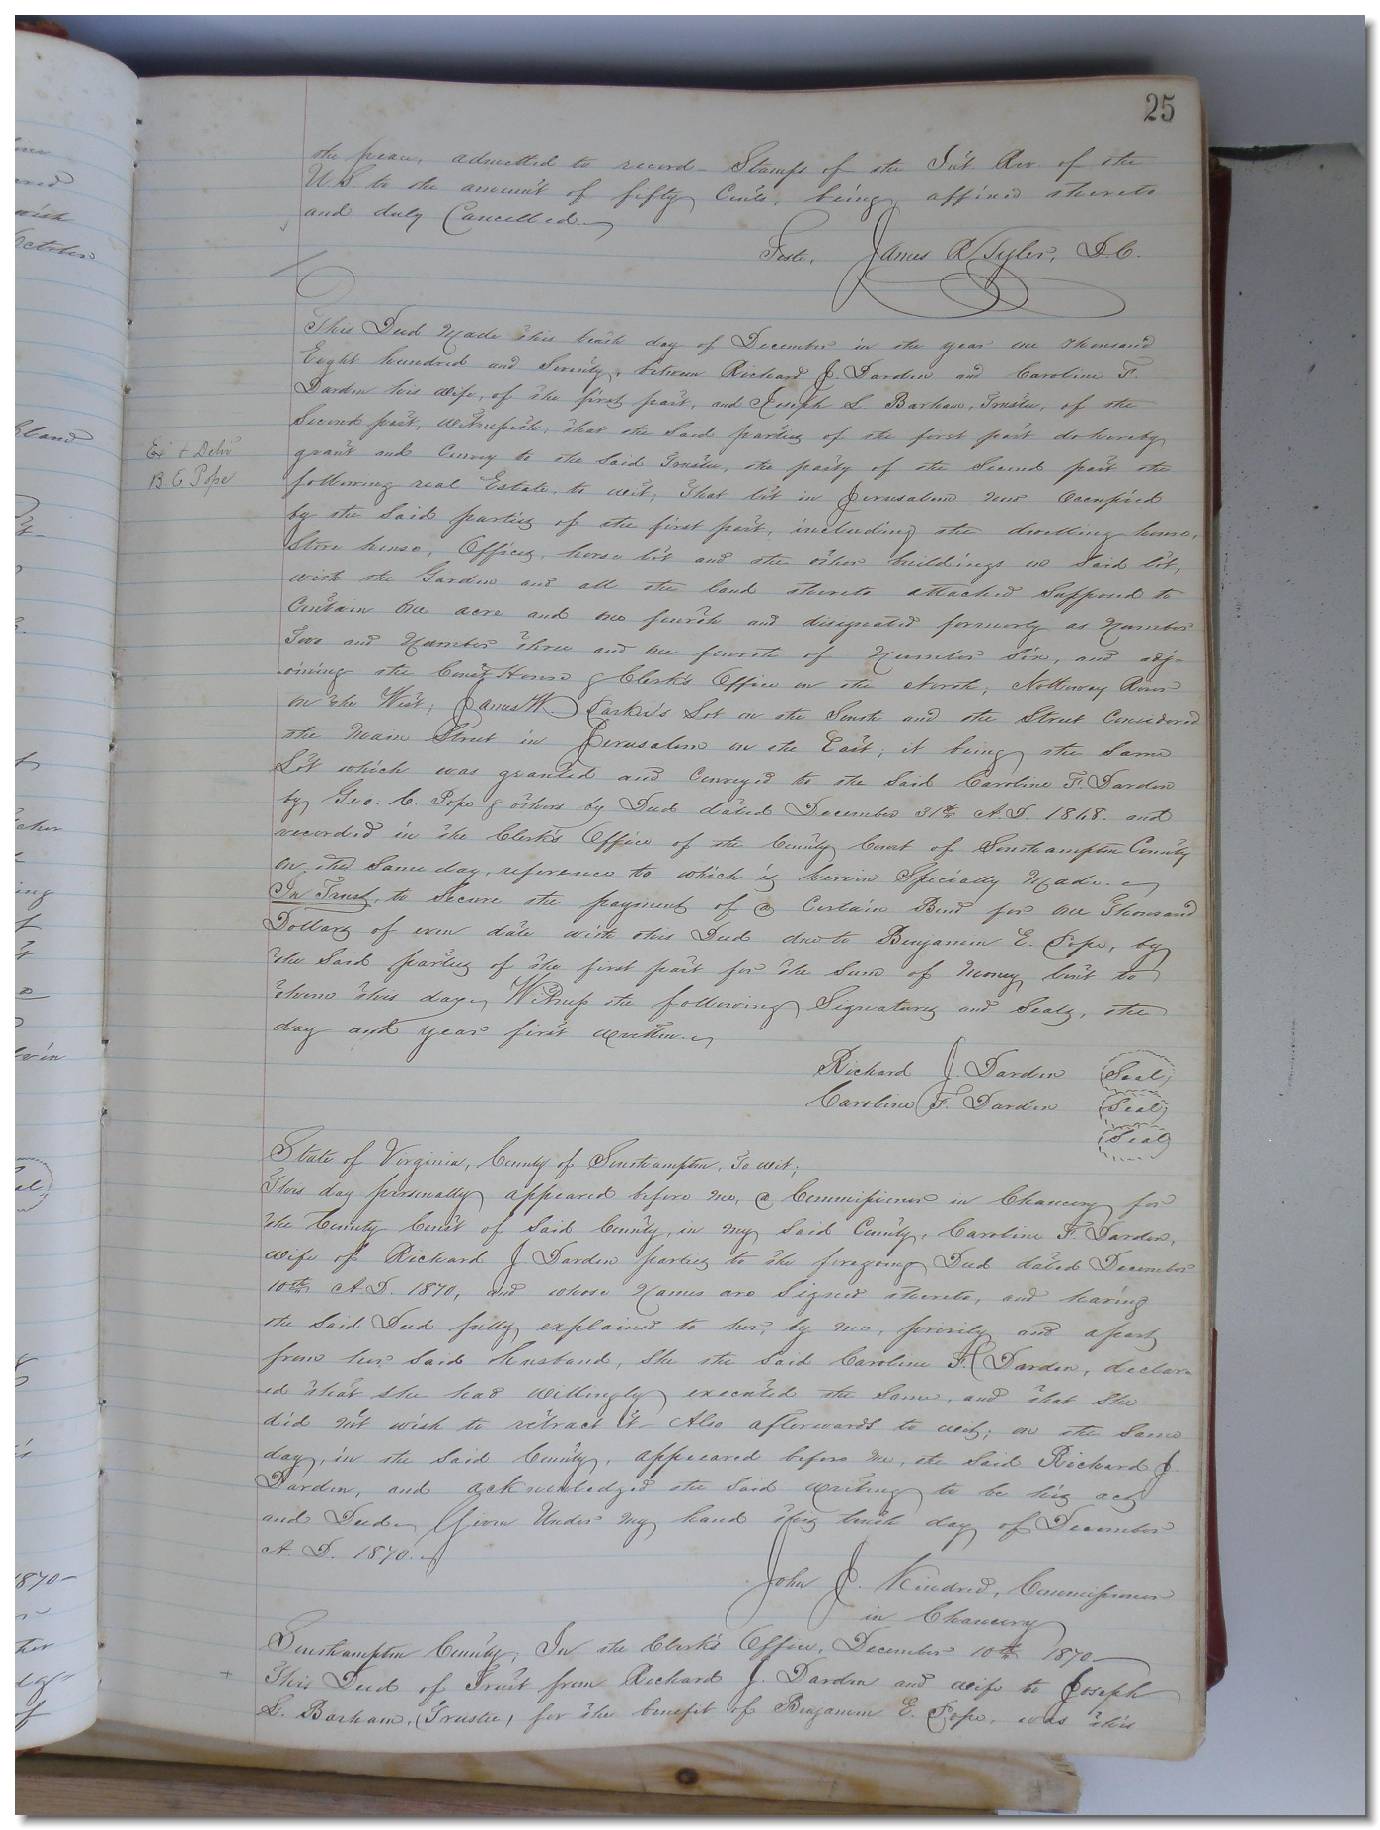 25
the peace, admitted to record - Stamps of the Int. Rev. of the
U.S. to the amount of fifty Cents, being affixed thereto
and duly Cancelled.
Teste, James R Tyler, D.C.
This Deed Made this tenth day of December in the year one thousand
Eight hundred and Seventy, between Richard J. Darden and Caroline F.
Darden his wife, of the first part, and Joseph L. Barham, Trustee, of the
Second part, Witnesseth, that the Said parties of the first part do hereby
Ex'd & Deliv'd
grant and Convey to the Said Trustee, the party of the Second part the
B. E Pope
following real Estate, to wit; That lot in Jerusalem now Occupied
by the Said parties of the first part, including the dwelling house,
Store house, Offices, horse lot and the other buildings on Said lot,
with the Garden and all the land thereto attached Supposed to
Contain One acre and one fourth and designated formerly as Number
Two and Number three and one fourth of Number Six, and adj-
oining the Court House & Clerk's Office on the North; Nottoway River
on the West; James W Parker's Lot on the South and the Street Considered
the Main Street in Jerusalem on the East; it being the Same
Lot which was granted and Conveyed to the Said Caroline F. Darden
by Geo. C. Pope & others by Deed dated December 31st A.D. 1868. and
recorded in the Clerk's Office of the County Court of Southampton County
on the Same day, reference to which is herein Specially Made.
In Trust, to Secure the payment of a Certain Bond for One Thousand
Dollars of even date with this Deed due to Benjamin E. Pope, by
the Said parties of the first part for the Sum of Money lent to
them this day. Witness the following Signatures and Seals, the
day and year first written.
Richard J. Darden Seal
Caroline F. Darden Seal
Seal
State of Virginia, County of Southampton, To wit;
This day personally appeared before me, a Commissioner in Chancery for
the County Court of Said County, in my Said County, Caroline F. Darden,
wife of Richard J Darden parties to the foregoing Deed dated December
10th A.D. 1870, and whose Names are Signed thereto, and having
the Said Deed fully explained to her, by me, privily and apart
from her Said Husband, She the Said Caroline F. Darden, declar-
ed that She had Willingly executed the Same, and that She
did not wish to retract it - Also afterwards to wit; on the Same
day, in the Said County, appeared before me, the Said Richard J.
Darden, and acknowledged the Said writing to be his act
and Deed. Given Under My hand this tenth day of December
A. D. 1870.
John J. Kindred, Commissioner
in Chancery
Southampton County; In the Clerk's Office, December 10th 1870
This Deed of Trust from Richard J. Darden and wife to Joseph
L. Barham, Trustee, for the benefit of Benjamin E. Pope, was this